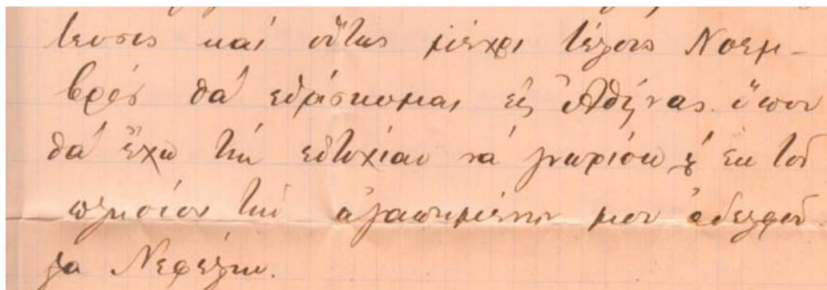 τευσις καὶ οὕτως μέχρι τέλους Νοεμ-
βρίου θὰ εὑρίσκωμαι εἰς Ἀθήνας ὅπου
θὰ ἔχω τὴν εὐτυχίαν νὰ γνωρίσω ἐκ τοῦ
πλησίον τὴν ἀγαπημένην μου ἀδελφού
λα Νεφέλην.